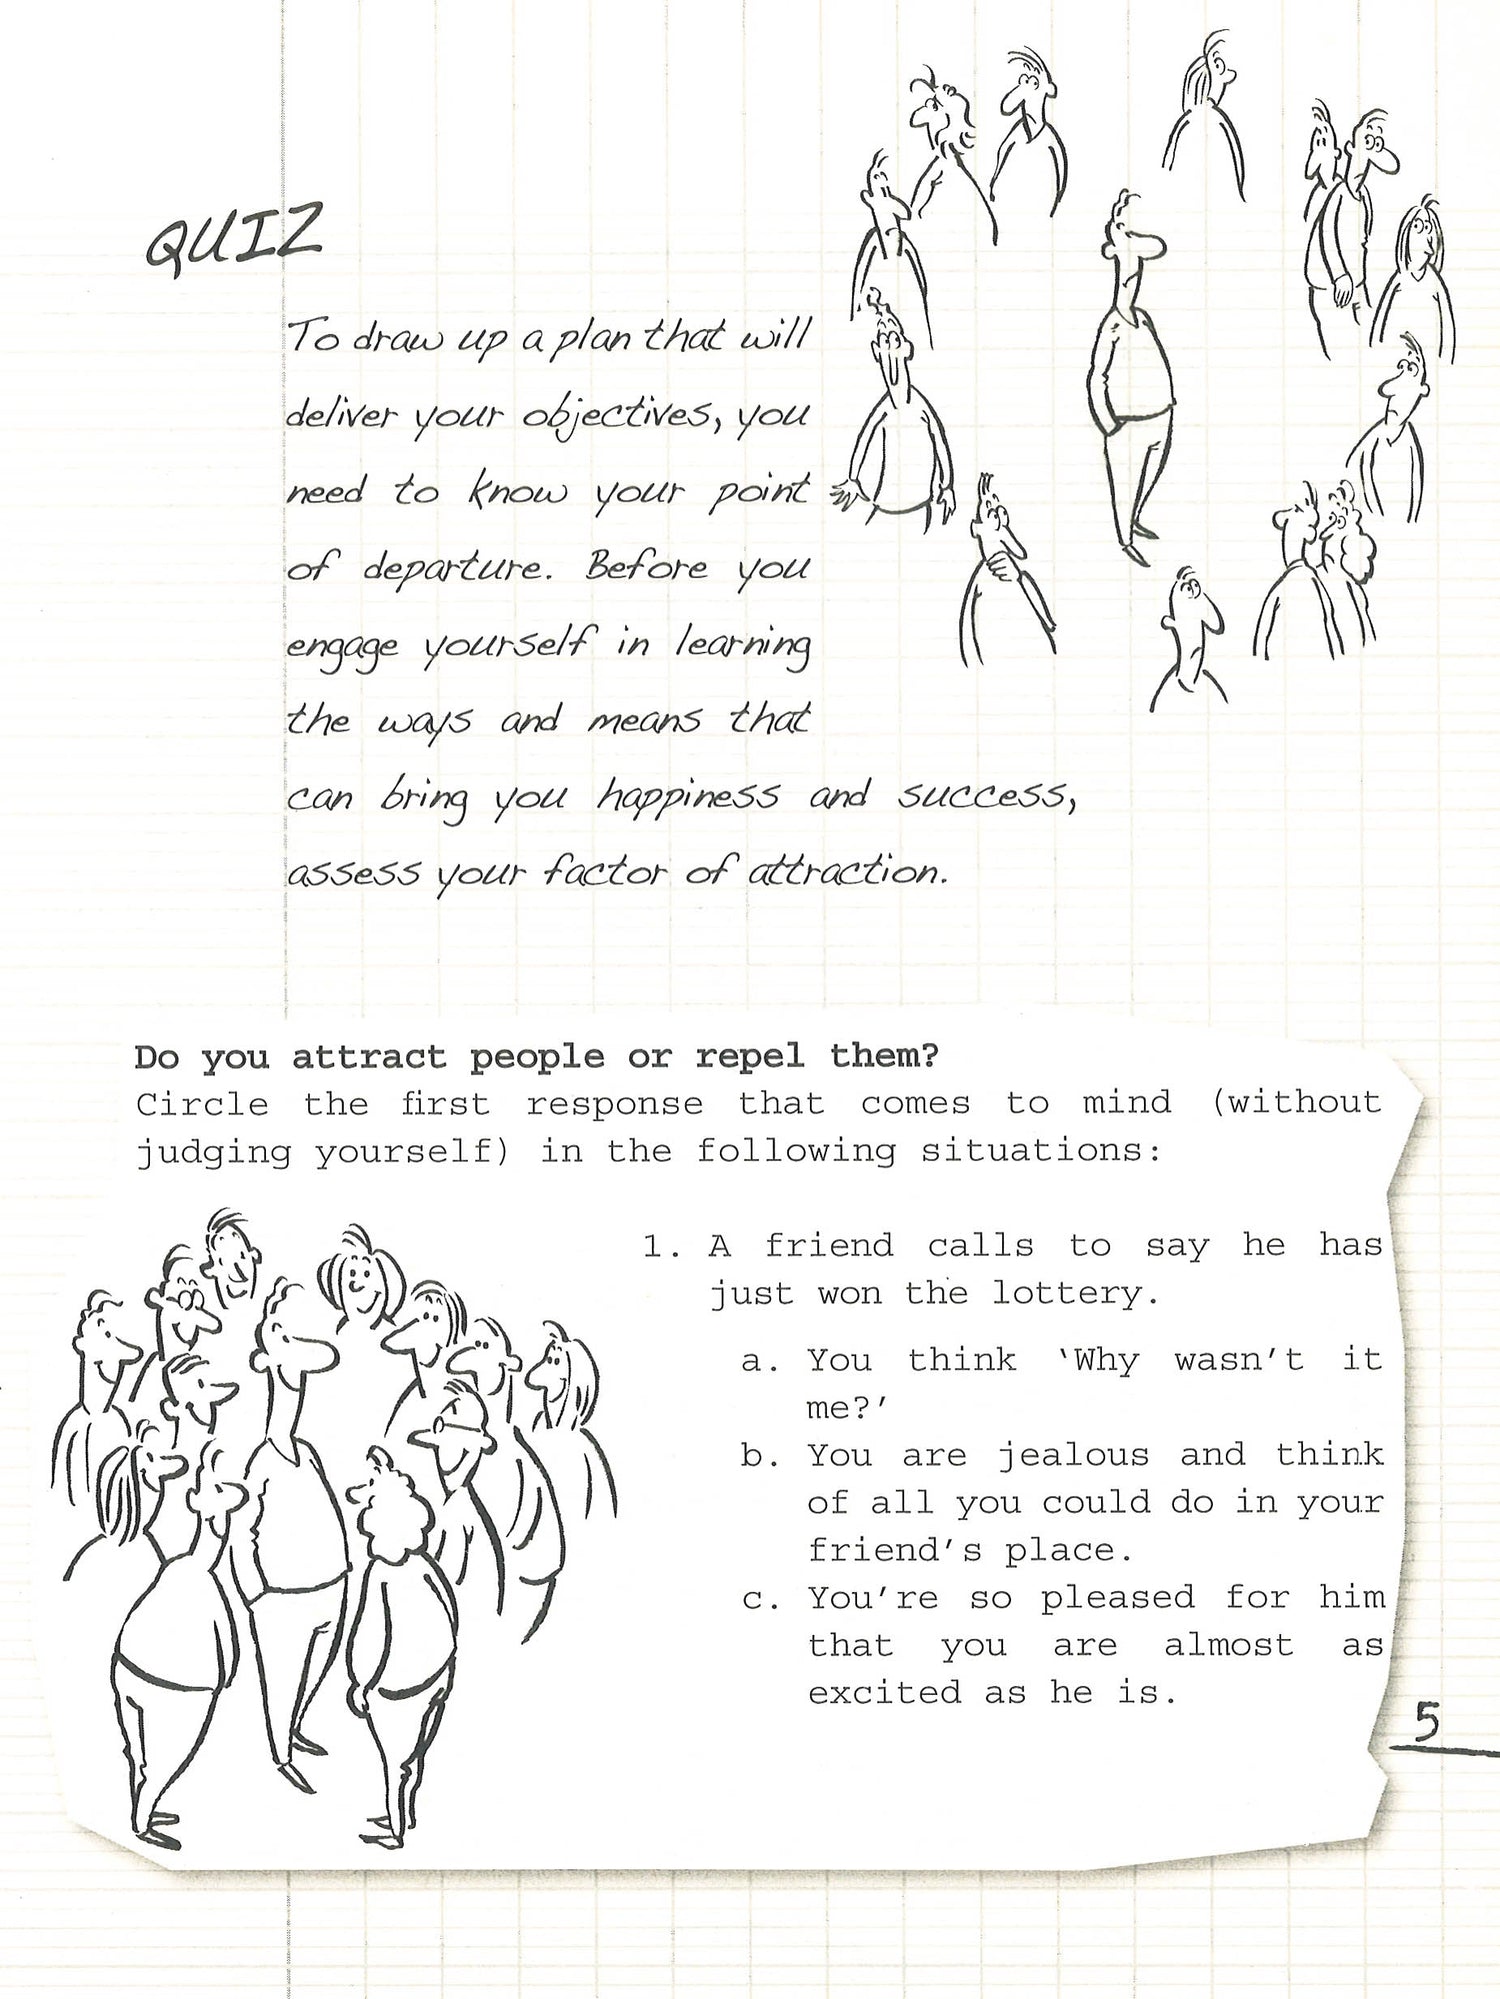 QUIZ
To draw up a plan that will
deliver your objectives, you
need to know your point
of departure. Before you
engage yourself in learning
the ways and means that
can bring you happiness and success,
assess your factor of attraction.
Do you attract people or repel them?
Circle the first response that comes to mind (without
judging yourself) in the following situations:
1. A friend calls to say he has
just won the lottery.
a. You think ‘Why wasn’t it
me?’
b. You are jealous and think
of all you could do in your
friend’s place.
c. You’re so pleased for him
that you are almost as
excited as he is.
5